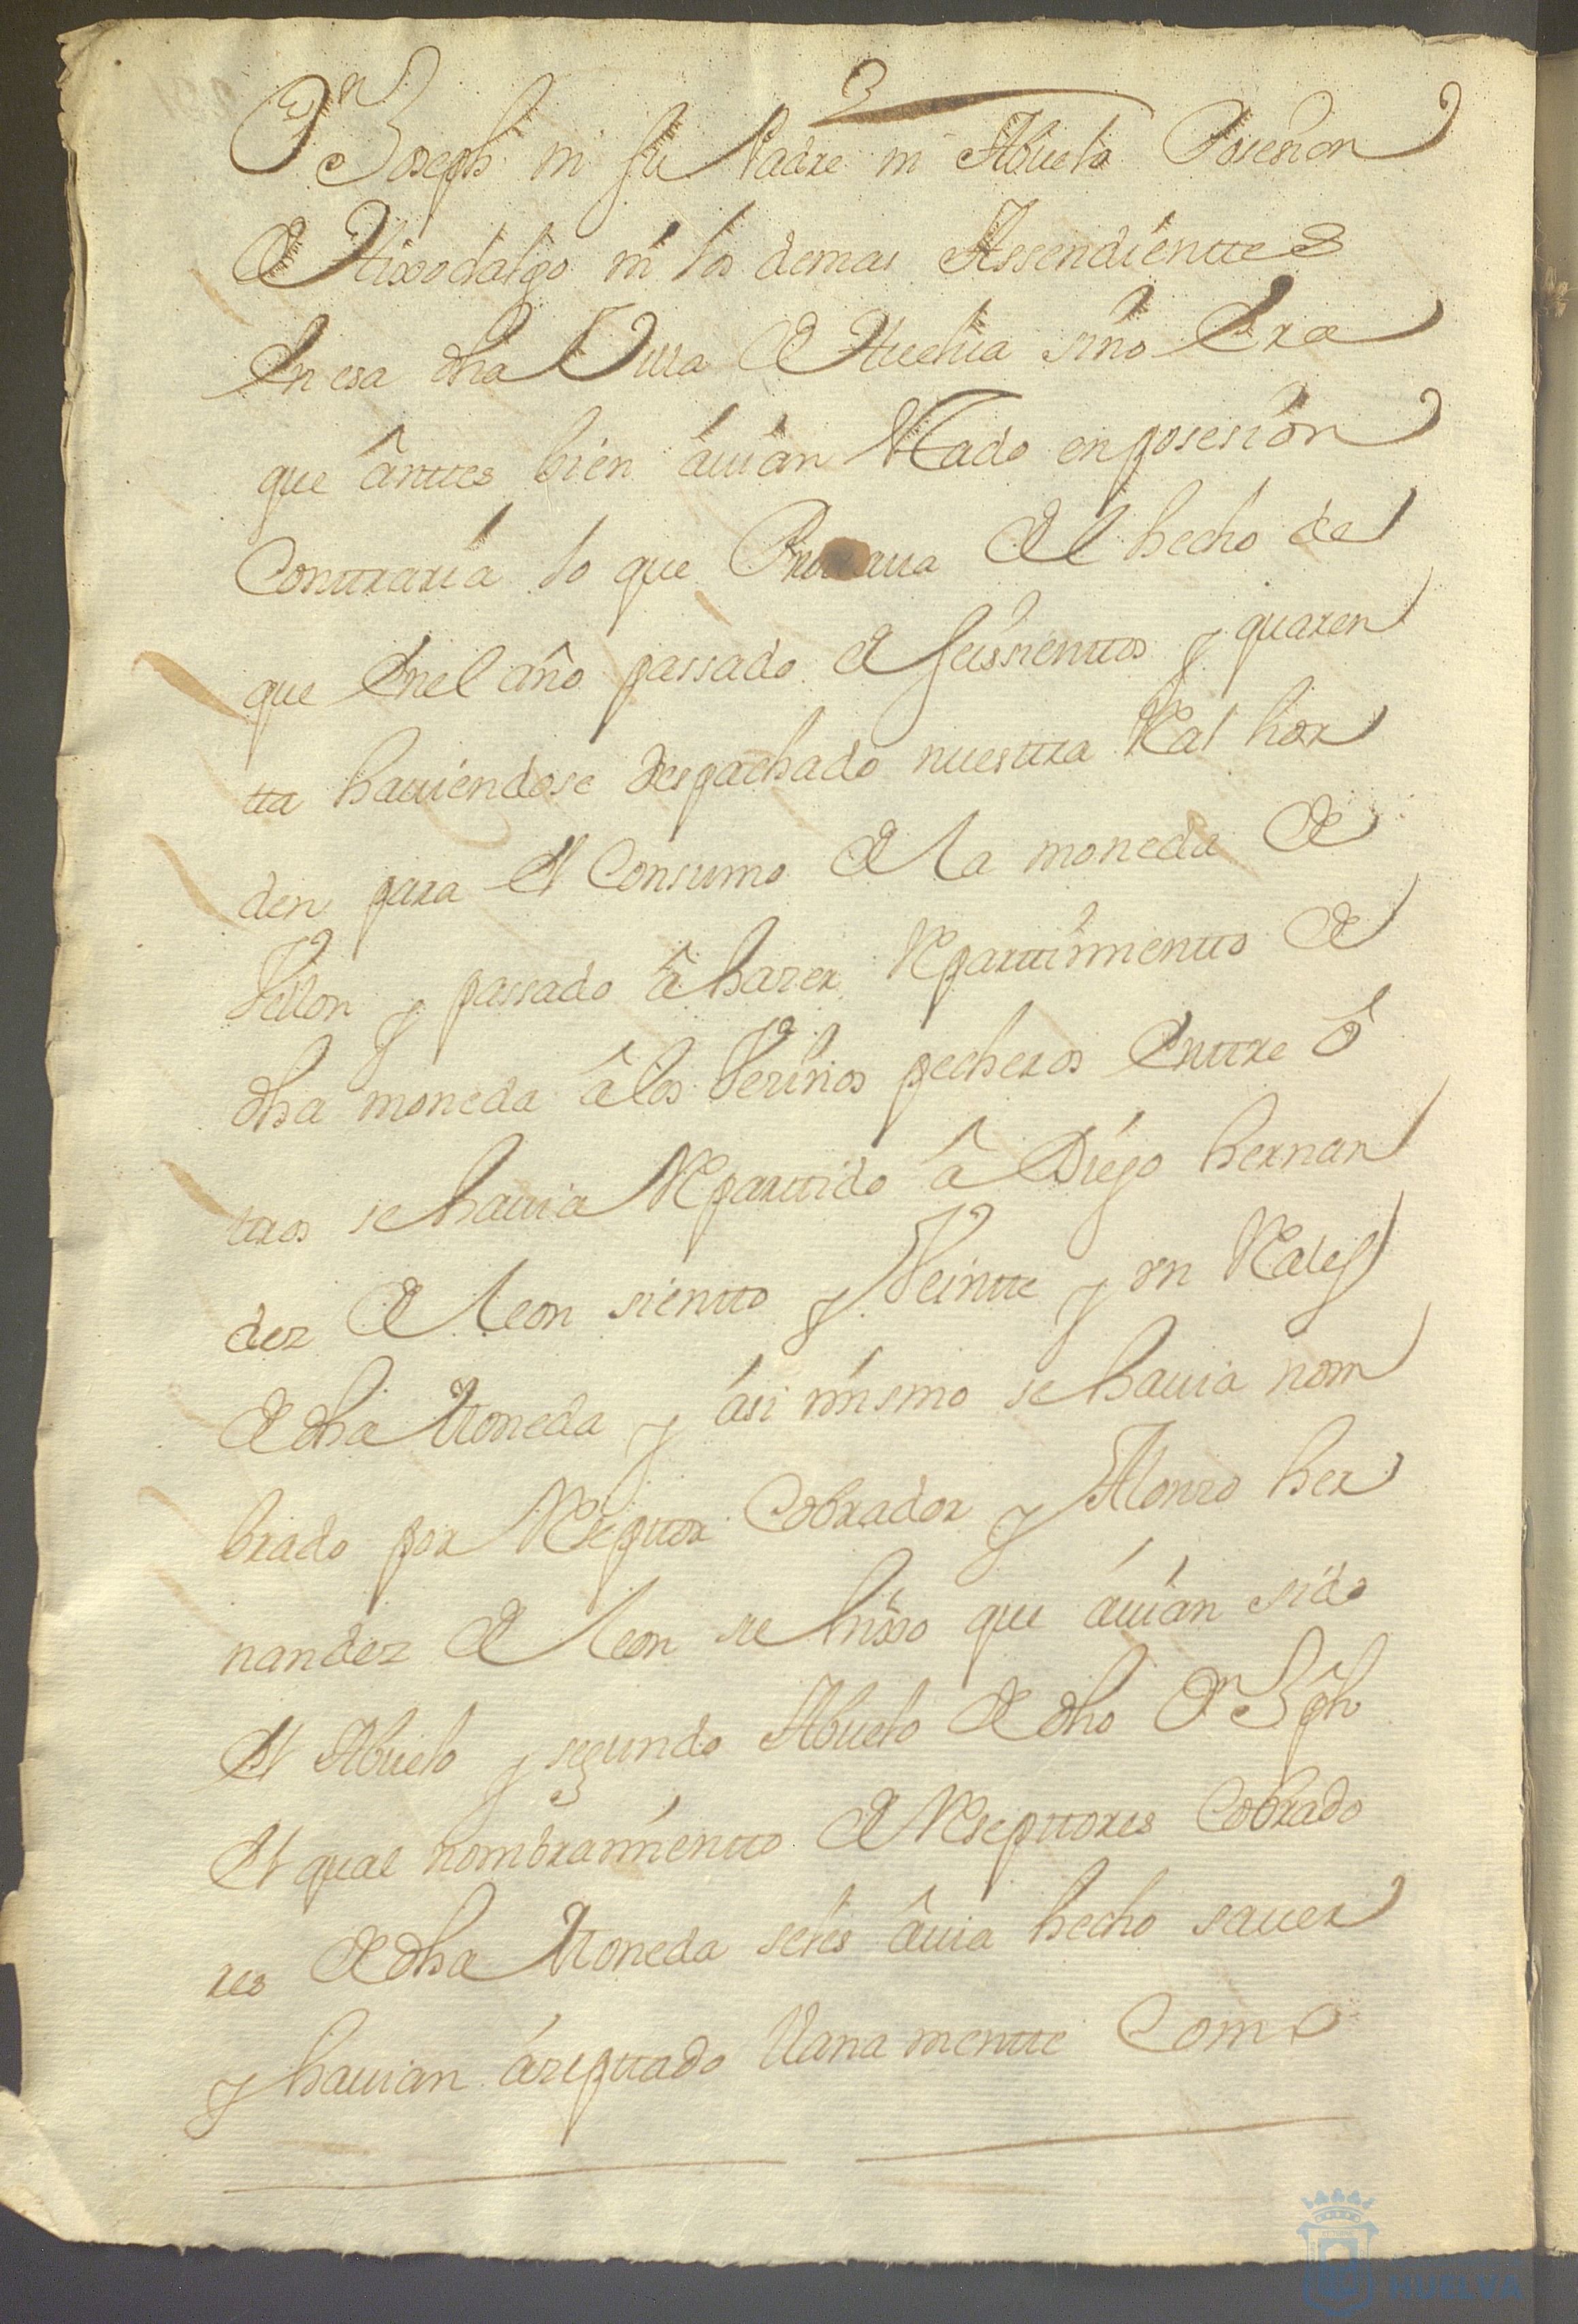 Dn Joseph ni su Padre ni Abuelo Posesion
de Hixodalgo ni los demas Assendienttes
En esa dha Villa de Huelva sino Era
que ânttes bien áuian estado en posesion
Conttraria lo que Prouaua el hecho de
que Enel año passado de seissienttos y quaren
tta hauiendose despachado nuesttra Real hor
den para el Consumo de la moneda de
Vellon y passado â hazer Reparttimientto de
dha moneda âlos Vezinos pecheros Enttre ô
ttros se hauia Reparttido â Diego hernan
dez de leon sientto y Veintte y un Reales
de dha Moneda y ási mismo se hauia nom
brado por Resepttor Cobrador y Alonzo her
nandez de leon su hixo que áuian sido
el Abuelo y segundo Abuelo de dho Dn Jph
el qual nombramientto de Reseptores Cobrado
res de dha Moneda seles âuia hecho sauer
y hauian áseptado llanamentte Como
HUELVA